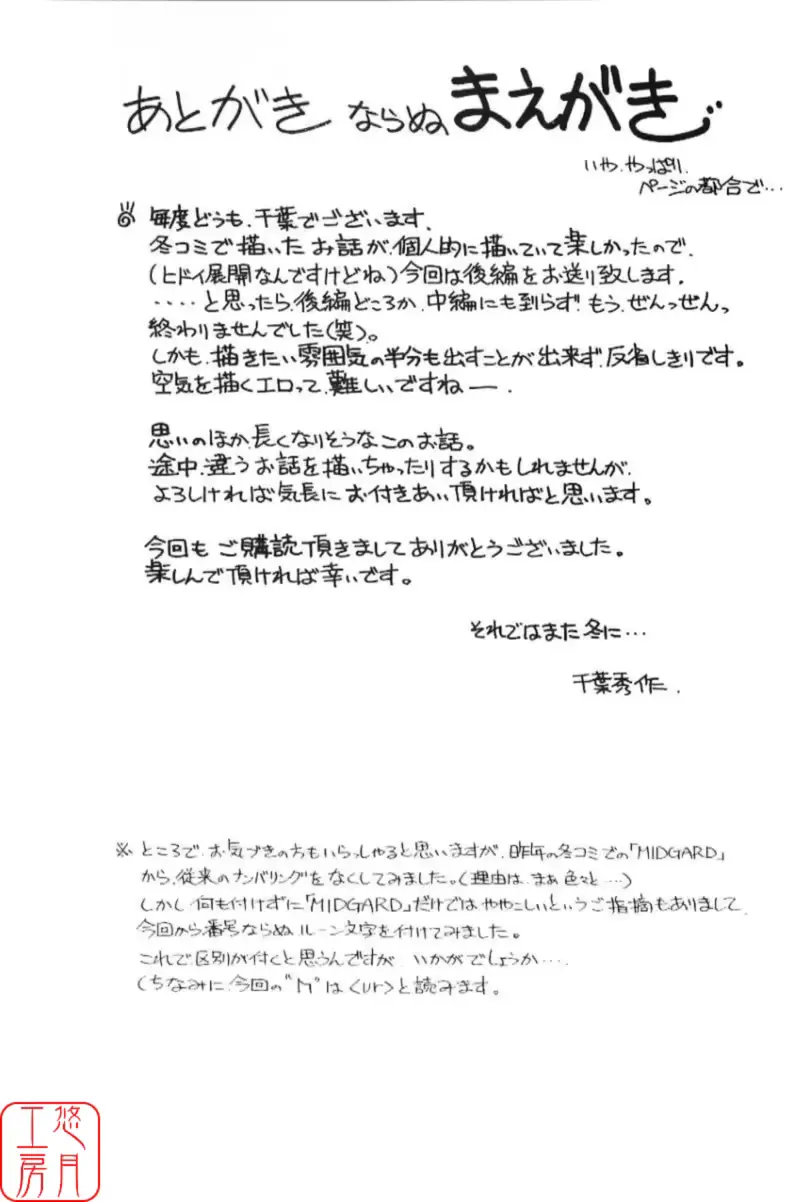 あとがき ならぬ、まえがき
いや、やっぱり、
ページの都合で…
毎度どうも、千葉でございます。
冬コミで描いた お話が、個人的に描いていて楽しかったので、
(ヒドイ展開なんですけどね)今回は後編をお送り致します。
‥‥と思ったら、後編どころか、中編にも到らず、もう、ぜんっぜんっ
終わりませんでした(笑)。
しかも、描きたい雰囲気の半分も出すことが出来ず、反省しきりです。
空気を描くエロって、難しいですねー。
思いのほか、長くなりそうなこのお話。
途中、違う お話を描いちゃったりするかもしれませんが、
よろしければ気長に お付きあい頂ければと思います。
今回も ご購読頂きまして ありがとうございました。
楽しんで頂ければ幸いです。
それではまた 冬に…
千葉秀作.
※ ところで、お気づきの方もいらっしゃると思いますが、昨年の冬コミでの「MIDGARD」
から、従来のナンバリングをなくしてみました。(理由は、まぁ 色々と…)
しかし 何も付けずに「MIDGARD」だけではややこしいというご指摘もありまして、
今回から番号ならぬ ルーン文字を付けてみました。
これで区別が付くと思うんですが、いかがでしょうか…
(ちなみに、今回の"ᚢ"は<ur>と読みます。
悠月
工房